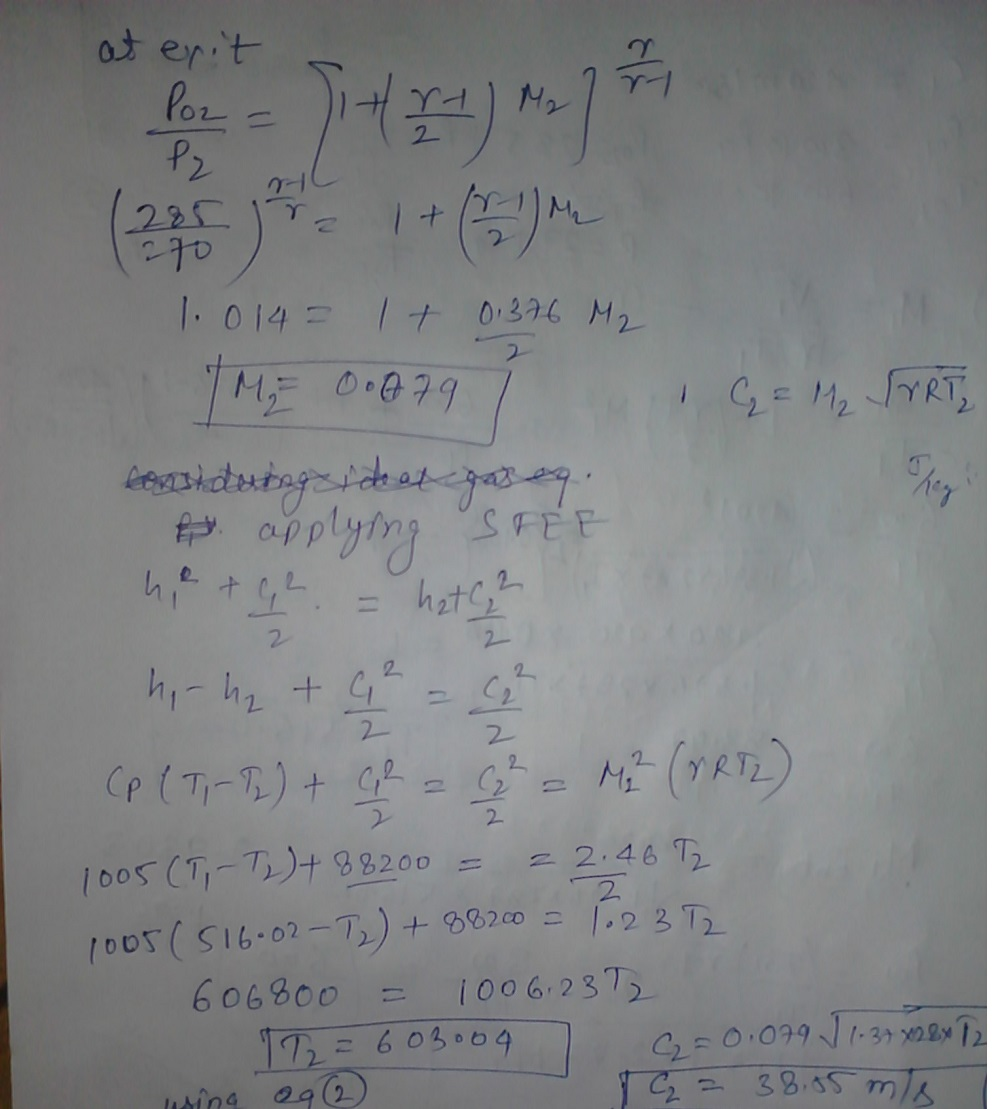 at exit
P02/P2 = [1+(γ-1/2) M2]^γ/γ-1
(285/270)^γ-1/γ = 1 + (γ-1/2) M2
1.014 = 1 + 0.376/2 M2
M2 = 0.079
C2 = M2 √γRT2
J/kg
considering ideal gas eq.
applying SFEE
h1² + C1²/2 = h2+C2²/2
h1 - h2 + C1²/2 = C2²/2
Cp (T1-T2) + C1²/2 = C2²/2 = M2² (γRT2)
1005 (T1-T2) + 88200 = = 2.46/2 T2
1005 (516.02-T2) + 88200 = 1.23 T2
606800 = 1006.23T2
T2 = 603.04
C2 = 0.079 √1.37×28×T2
using eq (2)
C2 = 38.55 m/s